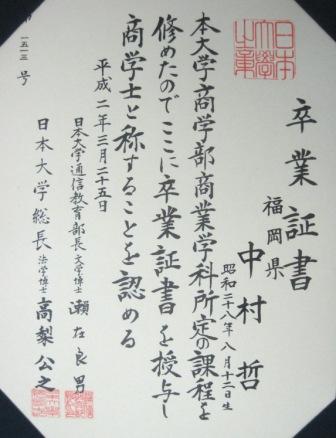 卒業証書
福岡県
中村哲
昭和二十八年八月十二日生
本大学商学部商業学科所定の課程を
修めたのでここに卒業証書を授与し
商学士と称することを認める
平成二年三月二十五日
日本大学通信教育部長 文学博士 瀬在良男
日本大学総長 法学博士 高梨公之
第一五一三号
日本
大學
之章